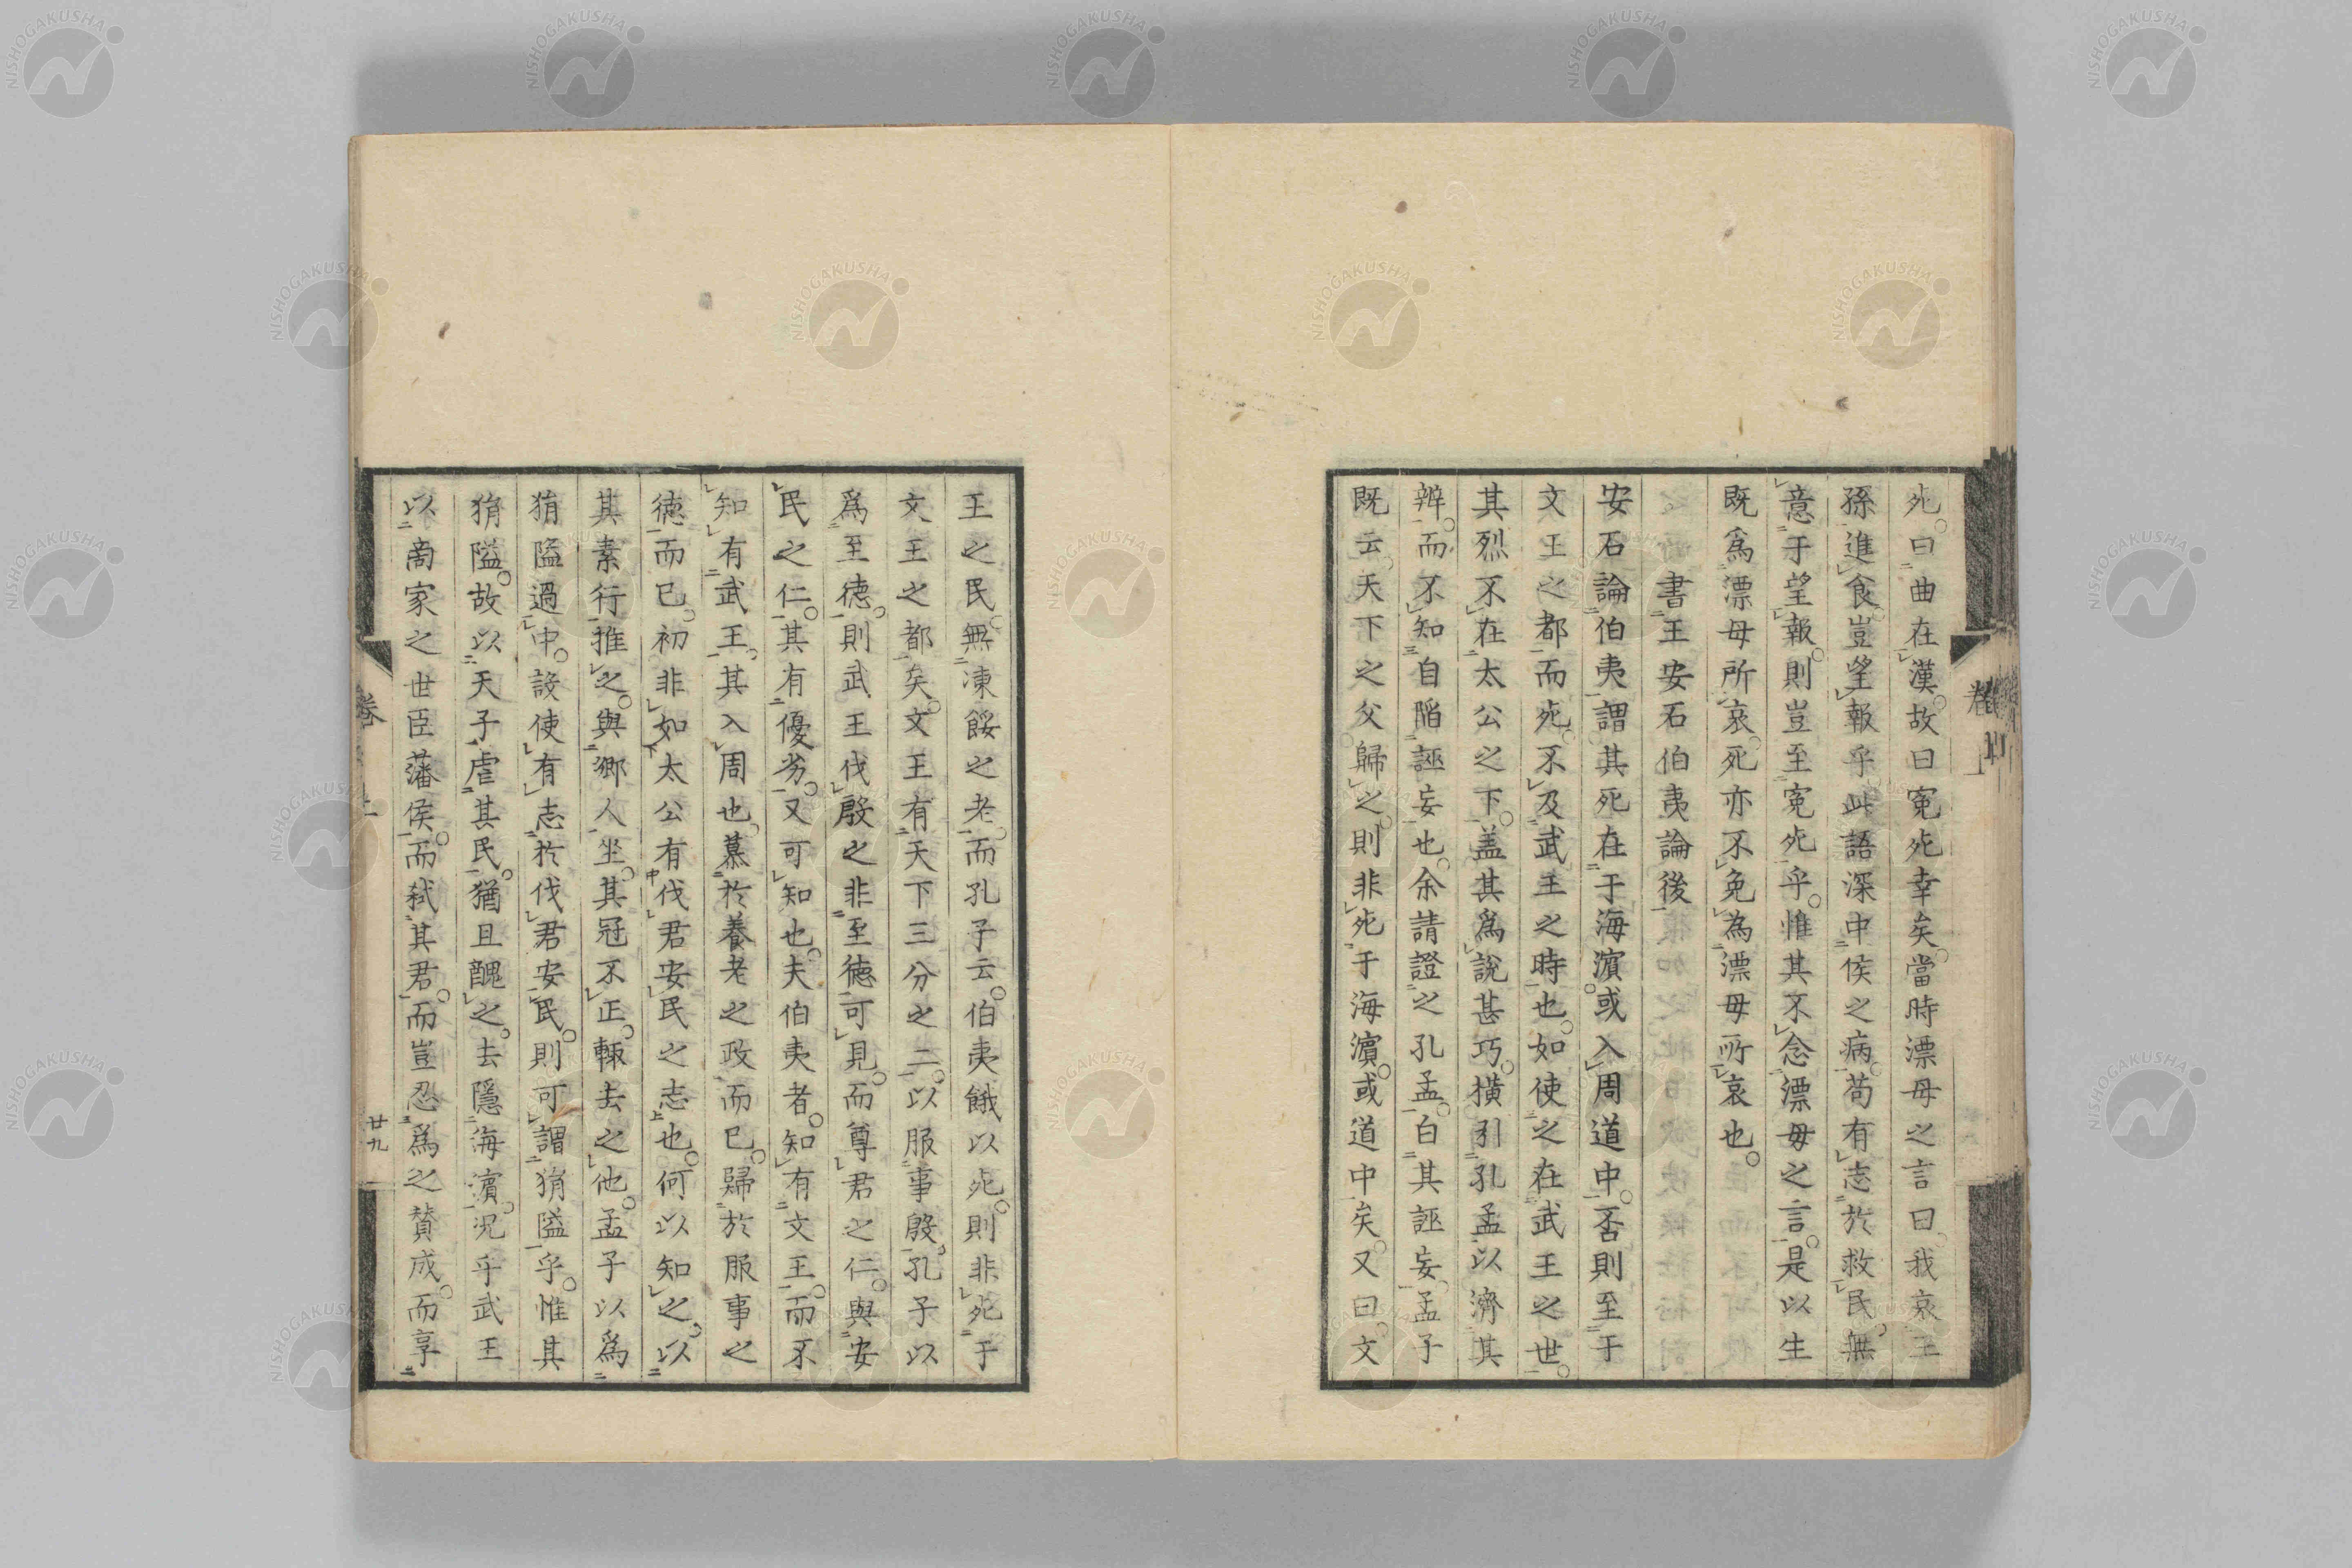 死。曰曲在漢。故曰冤死幸矣。當時漂母之言曰。我哀王
孫進食。豈望報乎。此語深中侯之病。苟有志於救民。無
意于望報。則豈至冤死乎。惟其不念漂毋之言。是以生
既爲漂母所哀。死亦不免為漂毋所哀也。
書王安石伯夷論後
安石論伯夷。謂其死在于海濵。或入周道中。否則至于
文王之都而死。不及武王之時也。如使之在武王之世。
其烈不在太公之下。盖其爲說甚巧。橫引孔孟。以濟其
辨。而不知自陷誣妄也。余請證之孔孟。白其誣妄。孟子
既云。天下之父歸之。則非死于海濵。或道中矣。又曰。文
王之民。無凍餒之老。而孔子云。伯夷餓以死。則非死于
文王之都矣。文王有天下三分之二。以服事殷。孔子以
爲至德。則武王伐殷之非至德可見。而尊君之仁。與安
民之仁。其有優劣。又可知也。夫伯夷者。知有文王。而不
知有武王。其入周也。慕於養老之政而已。歸於服事之
德而已。初非如太公有伐君安民之志也。何以知之。以
其素行推之。與鄉人坐。其冠不正。輙去之他。孟子以爲
狷隘過中。設使有志於伐君安民。則可謂狷隘乎。惟其
狷隘。故以天子虐其民。猶且醜之。去隱海濵。况乎武王
以商家之世臣藩侯。而弒其君。而豈忍爲之賛成。而享
卷上
廿九
NISHOGAKUSHA